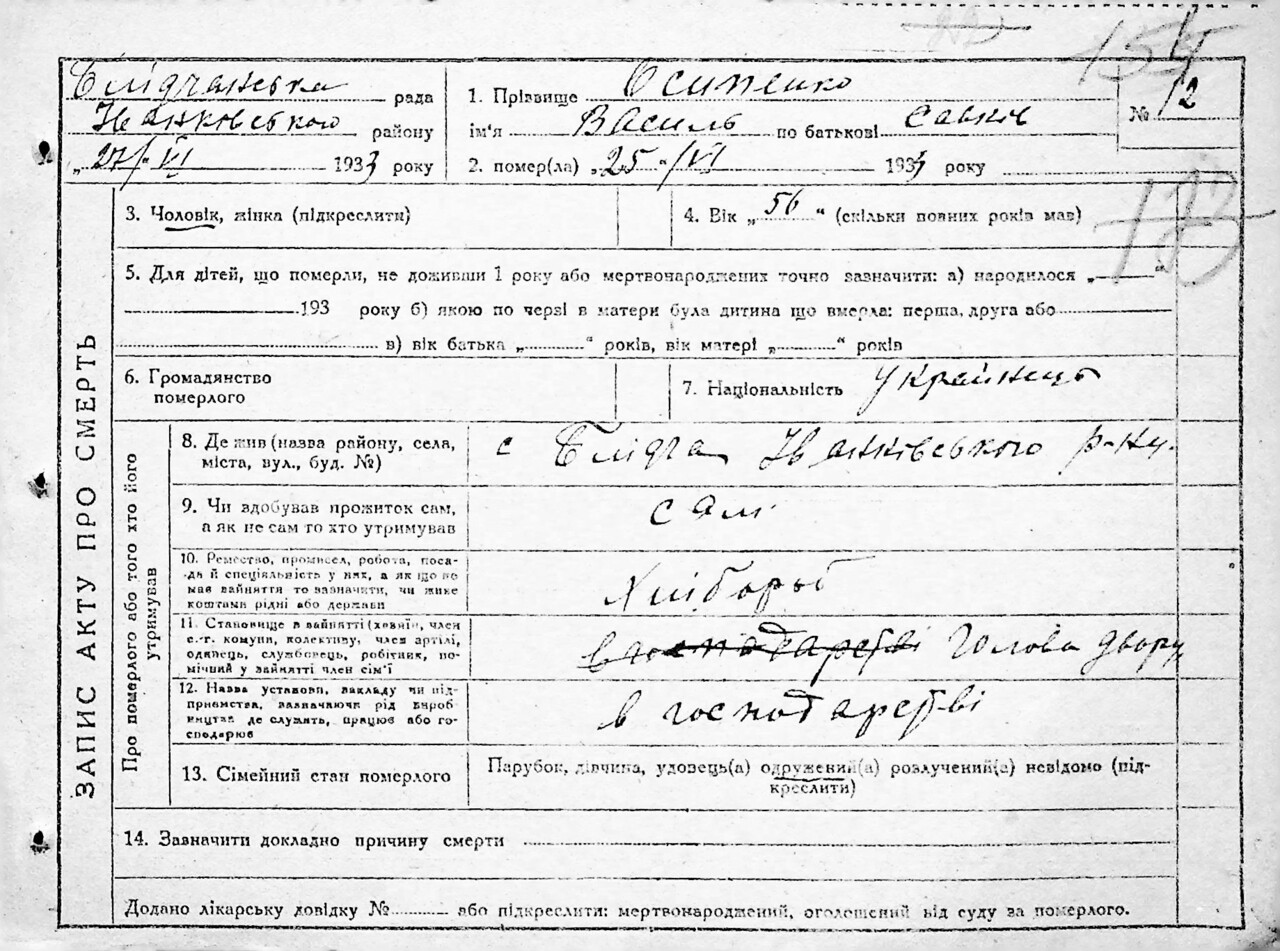 Блідчанська рада
Іванківського району
„27/VI 1933 року
1. Прізвище Осипенко
ім'я Василь по батькові Савків
2. помер(ла) „25“/VI 1933 року
№ 12
3. Чоловік, жінка (підкреслити)
4. Вік „56“ (скільки повних років мав)
5. Для дітей, що померли, не доживши 1 року або мертвонароджених точно зазначити: а) народилося „ “
193 року б) якою по черзі в матери була дитина що вмерла: перша, друга або
в) вік батька „ “ років, вік матері „ “ років
6. Громадянство
померлого
7. Національність Українець
ЗАПИС АКТУ ПРО СМЕРТЬ
Про померлого або того хто його
утримував
8. Де жив (назва району, села,
міста, вул., буд. №)
с Блідча Іванківського р-ну.
9. Чи здобував прожиток сам,
а як не сам то хто утримував
самі
10. Ремество, промисел, робота, поса-
да й спеціяльність у них, а як що не
мав зайняття то зазначити, чи жиже
коштами рідні або держави
Хлібороб
11. Становище в зайнятті (хазяїн, член
с.-г. комуни, колективу, член артілі,
одинець, службовець, робітник, по-
мічний у зайнятті член сім'ї
в господарстві Голова двору
12. Назва установи, закладу чи під-
приємства, зазначаючи рід вироб-
ництва де служить, працює або го-
сподарює
в господарстві
13. Сімейний стан померлого
Парубок, дівчина, удовець(а) одружений(а) розлучений(а) невідомо (під-
креслити)
14. Зазначити докладно причину смерти
Додано лікарську довідку № або підкреслити: мертвонароджений, оголошений від суду за померлого.